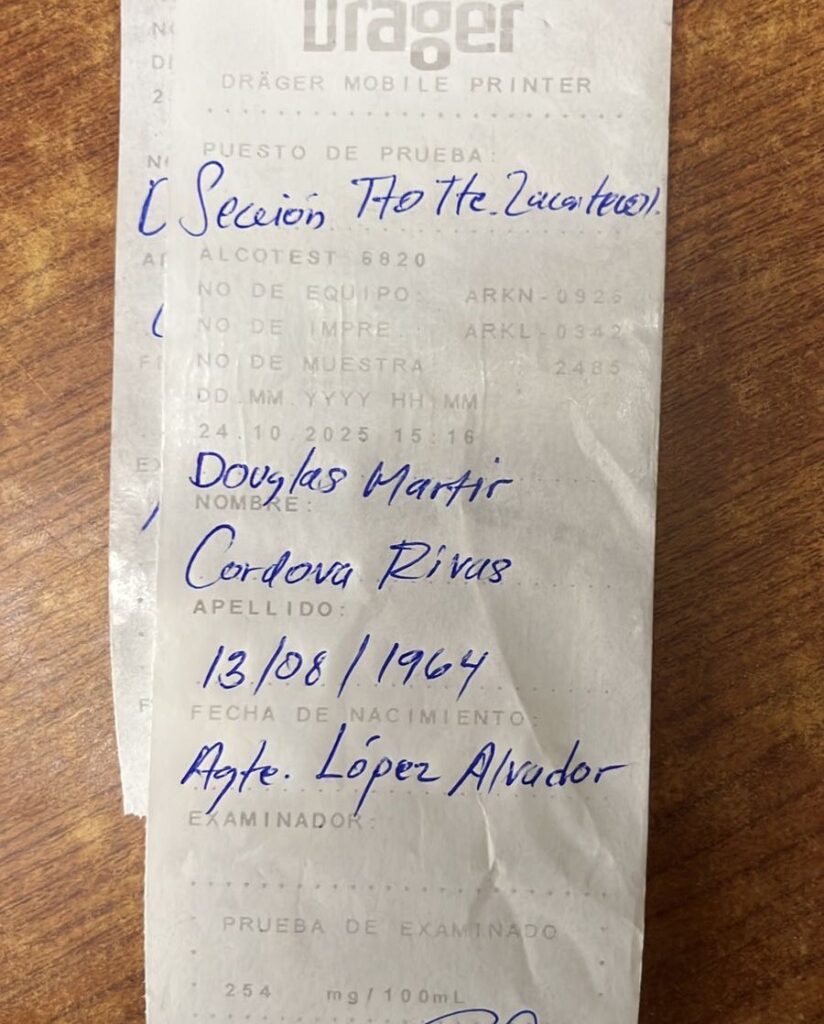 Dräger
DRÄGER MOBILE PRINTER
PUESTO DE PRUEBA:
Sección Tto Tte. Zacatecol.
ALCOTEST 6820
NO DE EQUIPO: ARKN-0926
NO DE IMPRE ARKL-0342
NO DE MUESTRA 2485
DD.MM.YYYY HH:MM
24.10.2025 15:16
Douglas Martir
NOMBRE:
Cordova Rivas
APELLIDO:
13/08/1964
FECHA DE NACIMIENTO:
Agte. López Alvador
EXAMINADOR:
PRUEBA DE EXAMINADO
254 mg/100mL